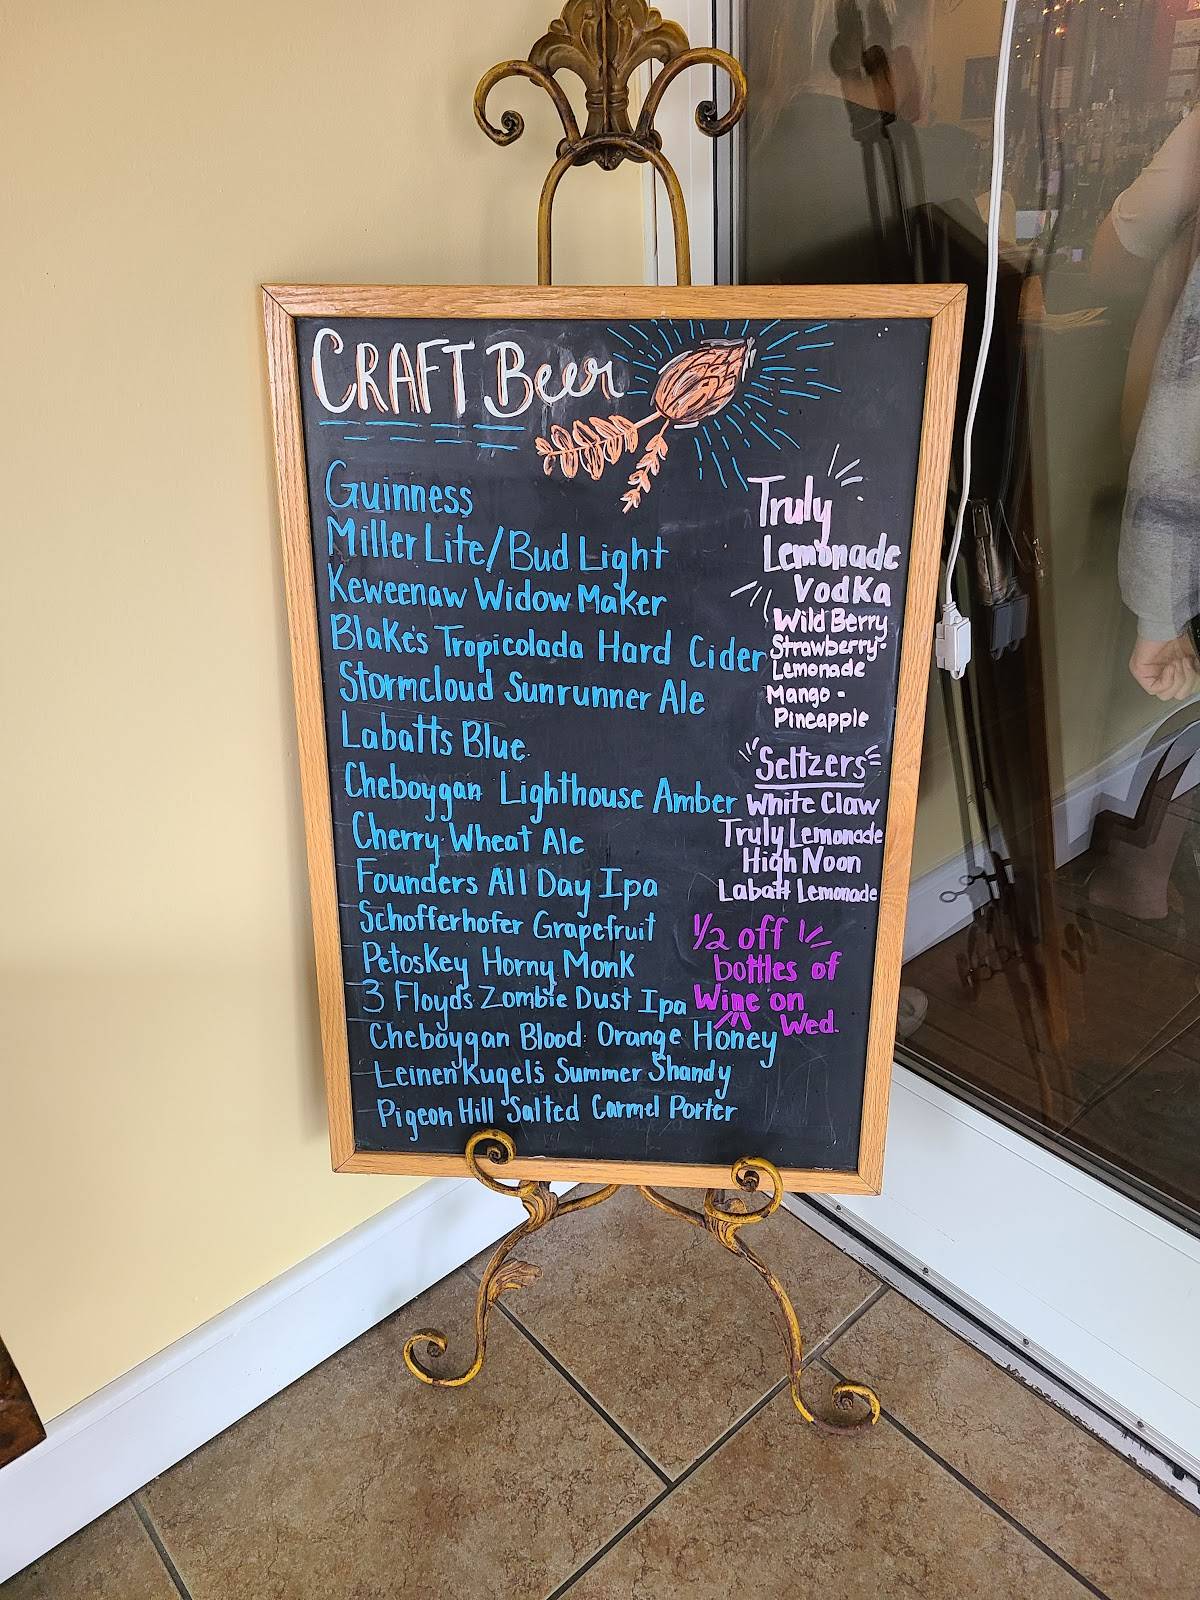 CRAFT Beer
Guinness
Miller Lite/Bud Light
Keweenaw Widow Maker
Blake's Tropicolada Hard Cider
Stormcloud Sunrunner Ale
Labatts Blue
Cheboygan Lighthouse Amber
Cherry Wheat Ale
Founders All Day Ipa
Schofferhofer Grapefruit
Petoskey Horny Monk
3 Floyds Zombie Dust Ipa
Cheboygan Blood Orange Honey
Leinenkugel's Summer Shandy
Pigeon Hill Salted Carmel Porter
Truly
Lemonade
Vodka
Wild Berry
Strawberry-
Lemonade
Mango -
Pineapple
Seltzers
White Claw
Truly Lemonade
High Noon
Labatt Lemonade
1/2 off
bottles of
Wine on
Wed.